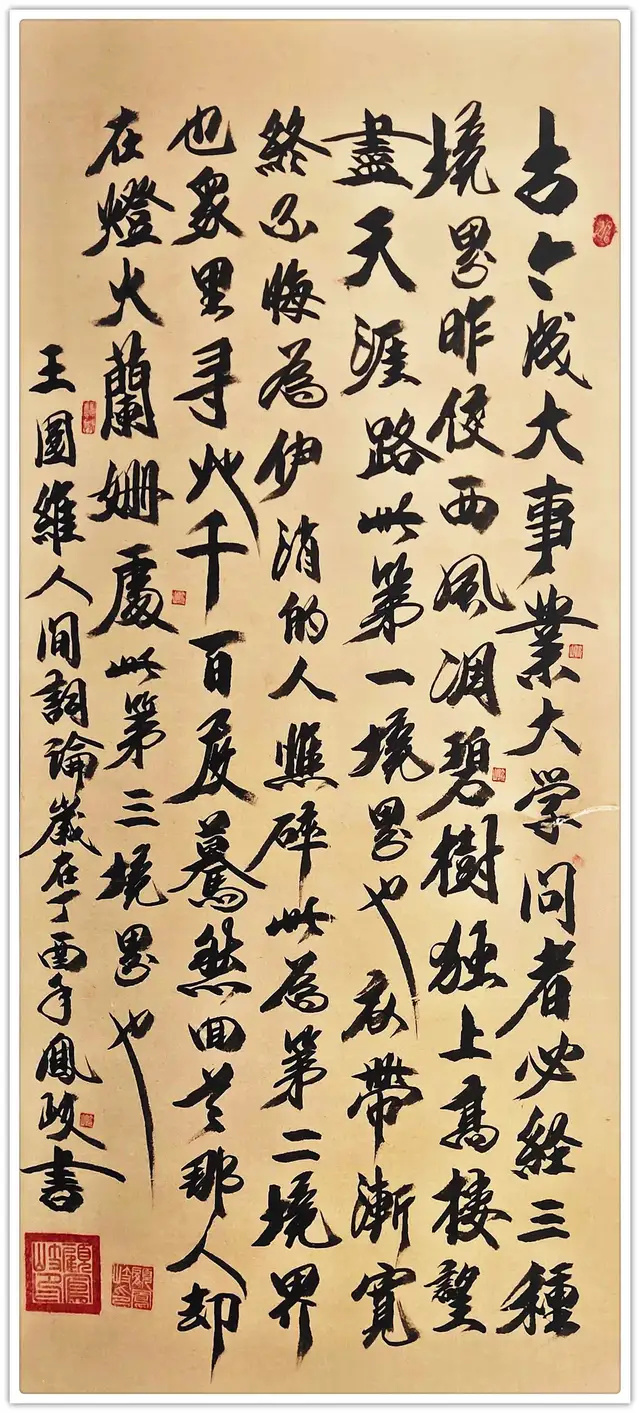 古今成大事業大学问者必経三種
境界昨夜西風凋碧樹独上高楼望
盡天涯路此第一境界也衣帶漸寬
終不悔為伊消的人憔碎此為第二境界
也眾里寻他千百度驀然回首那人却
在燈火蘭姗處此第三境界也
王國維人间詞論歲在丁酉年鳳岐書
顧鳳岐印
顧鳳岐印